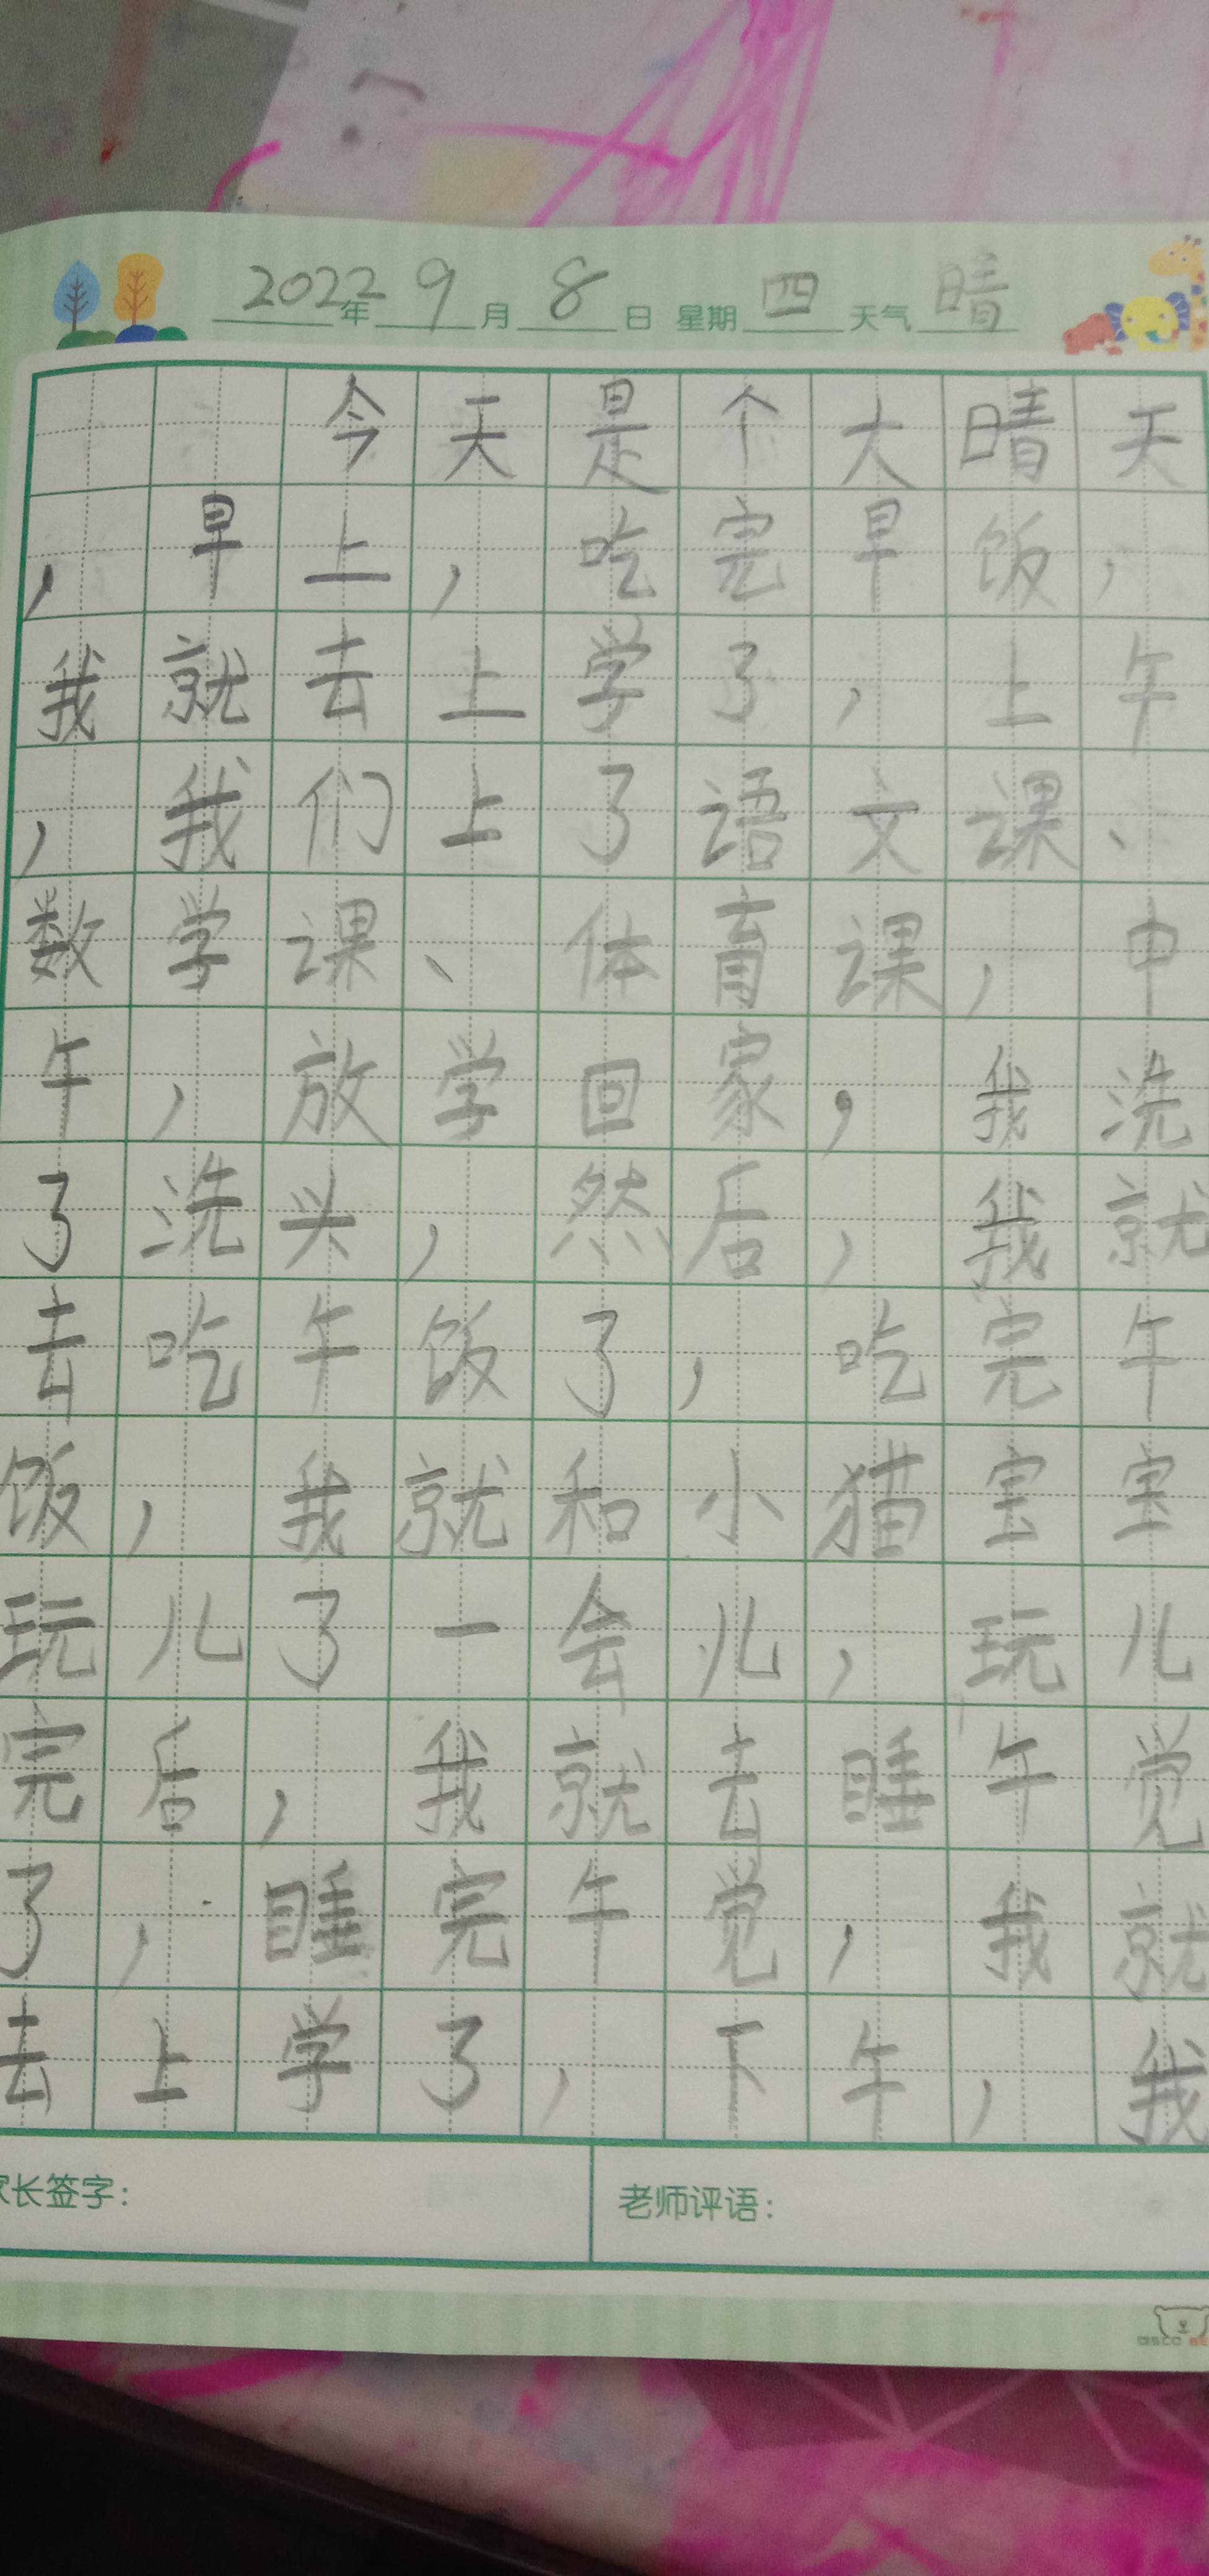 2022年9月8日 星期四 天气晴
今天是个大晴天
，早上，吃完早饭，
我就去上学了，上午
，我们上了语文课、
数学课、体育课，中
午，放学回家，我洗
了洗头，然后，我就
去吃午饭了，吃完午
饭，我就和小猫宝宝
玩儿了一会儿，玩儿
完后，我就去睡午觉
了，睡完午觉，我就
去上学了，下午，我
家长签字： 老师评语：